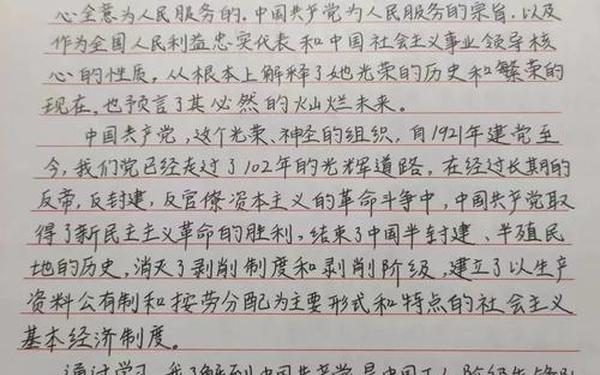 心全意为人民服务的。中国共产党为人民服务的宗旨，以及
作为全国人民利益忠实代表和中国社会主义事业领导核
心的性质。从根本上解释了她光荣的历史和繁荣的
现在，也预言了其必然的灿烂未来。
中国共产党，这个光荣、神圣的组织，自1921年建党至
今，我们党已经走过了102年的光辉道路。在经过长期的
反帝，反封建，反官僚资本主义的革命斗争中，中国共产党取
得了新民主主义革命的胜利，结束了中国半封建、半殖民
地的历史，消灭了剥削制度和剥削阶级，建立了以生产
资料公有制和按劳分配为主要形式和特点的社会主义
基本经济制度。
通过学习，我了解到中国共产党是中国工人阶级先锋队